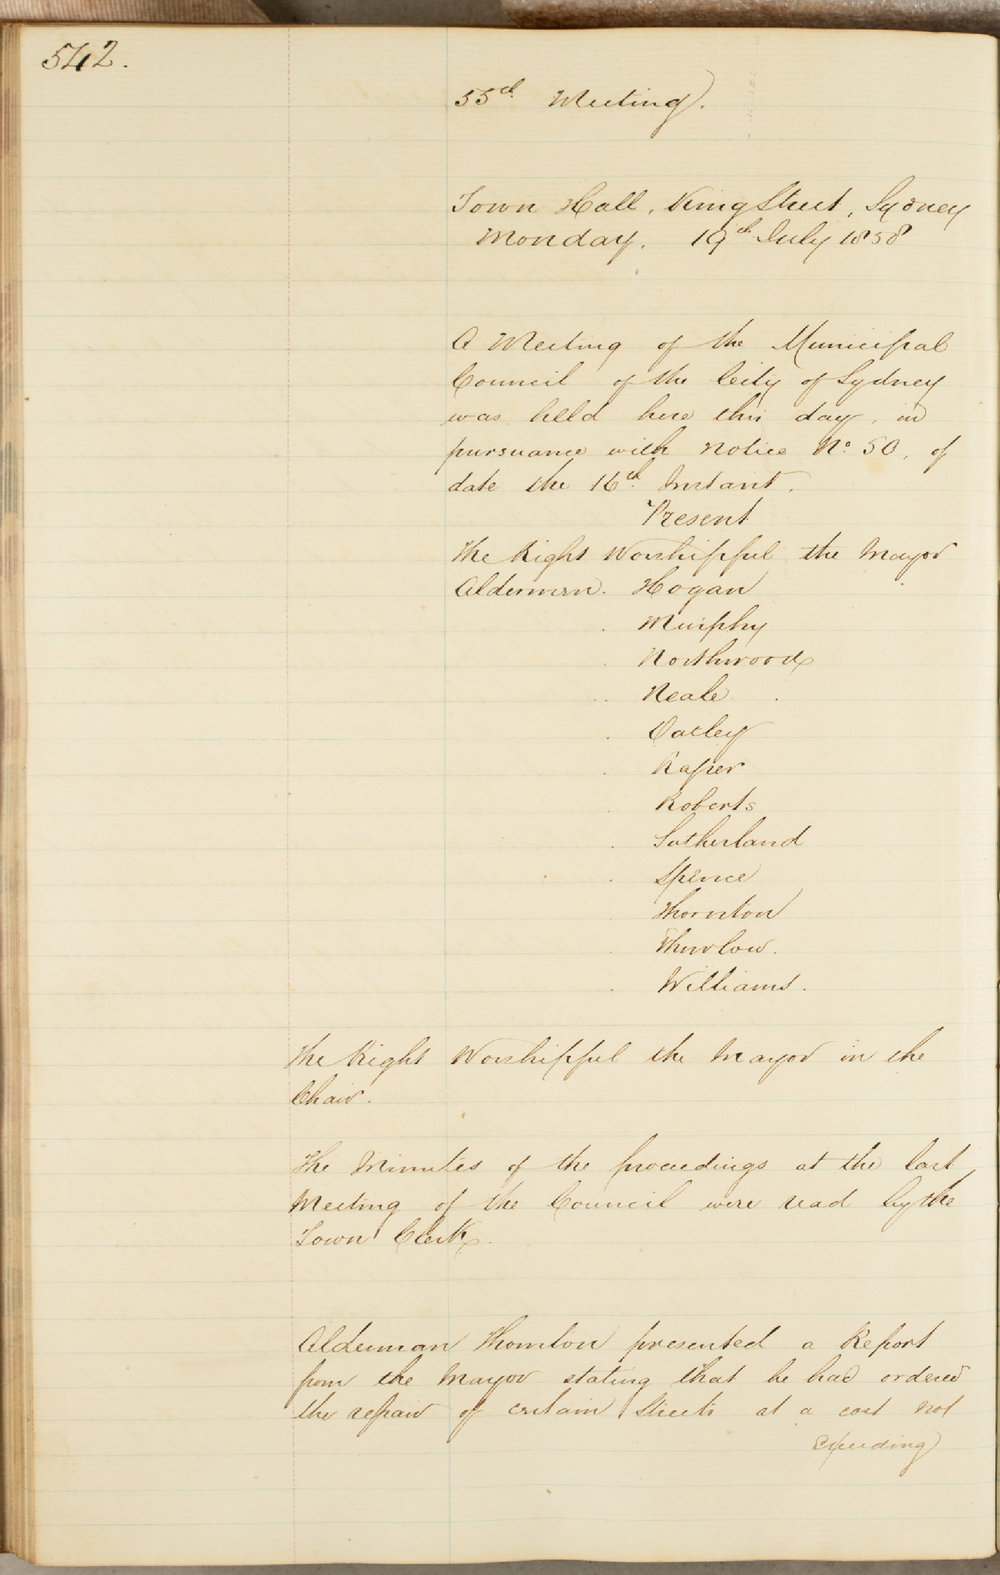 542.
55th Meeting.
Town Hall, King Street, Sydney
Monday, 19th July 1858
A Meeting of the Municipal
Council of the City of Sydney
was held here this day, in
pursuance with Notice No. 50, of
date the 16th Instant.
Present
The Right Worshipful the Mayor
Aldermen. Hogan
Murphy
Northwood
Neale
Oatley
Raper
Roberts
Sutherland
Spence
Thornton
Thurlow.
Williams.
The Right Worshipful the Mayor in the
Chair.
The Minutes of the proceedings at the last
Meeting of the Council were read by the
Town Clerk.
Alderman Thornton presented a Report
from the Mayor stating that he had ordered
the repair of certain Streets at a cost not
Exceeding